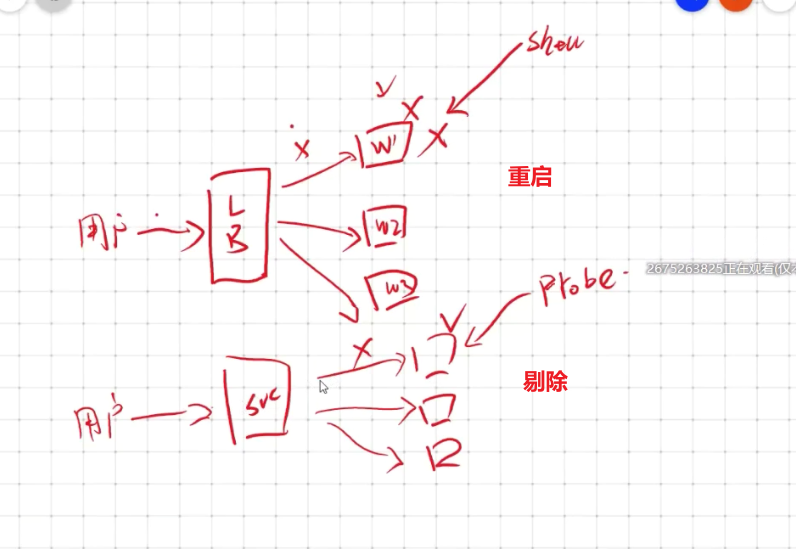 shell
W1
重启
用户
LB
W2
W3
2675263825正在观看(仅
Probe
剔除
用户
SVC